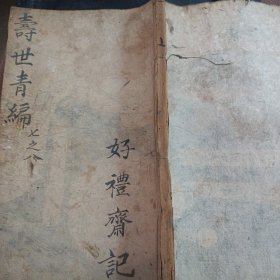 壽世青編
七之八
好禮齋記